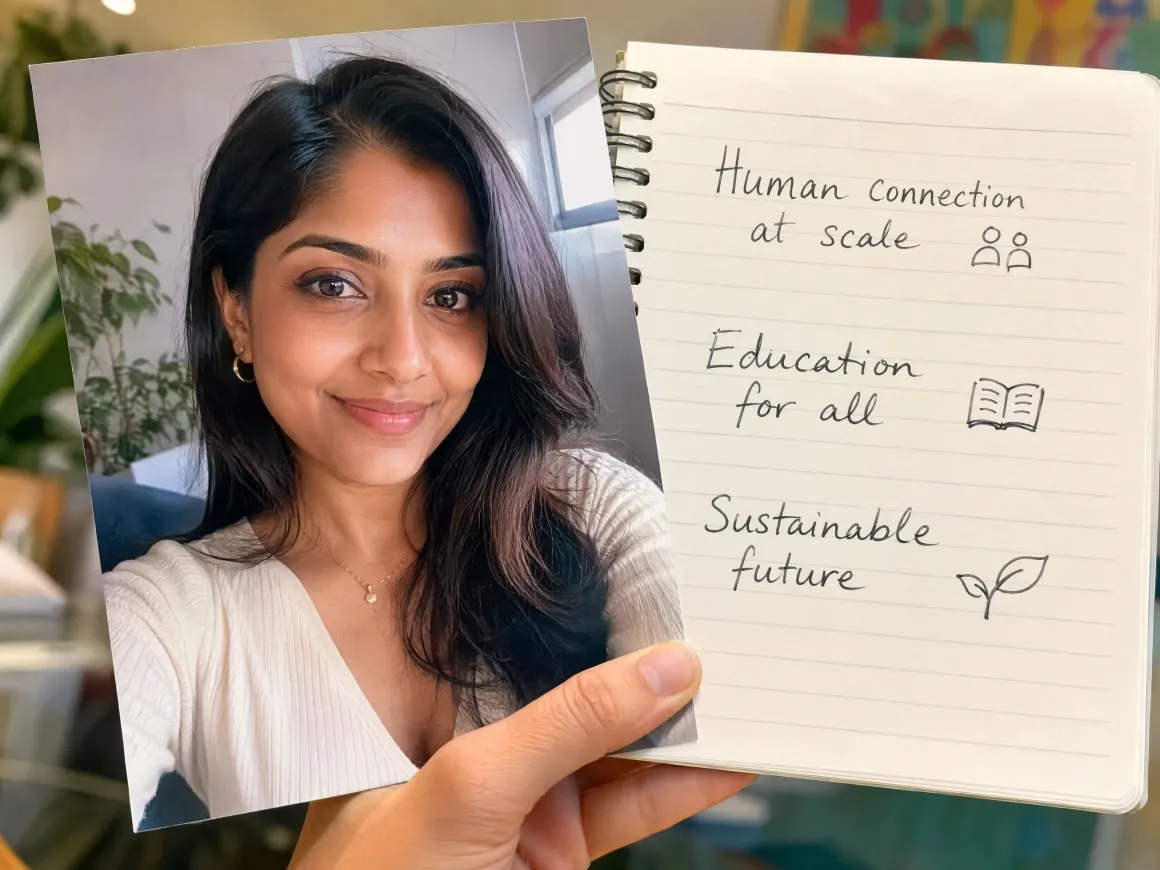 Human connection
at scale
Education
for all
Sustainable
future